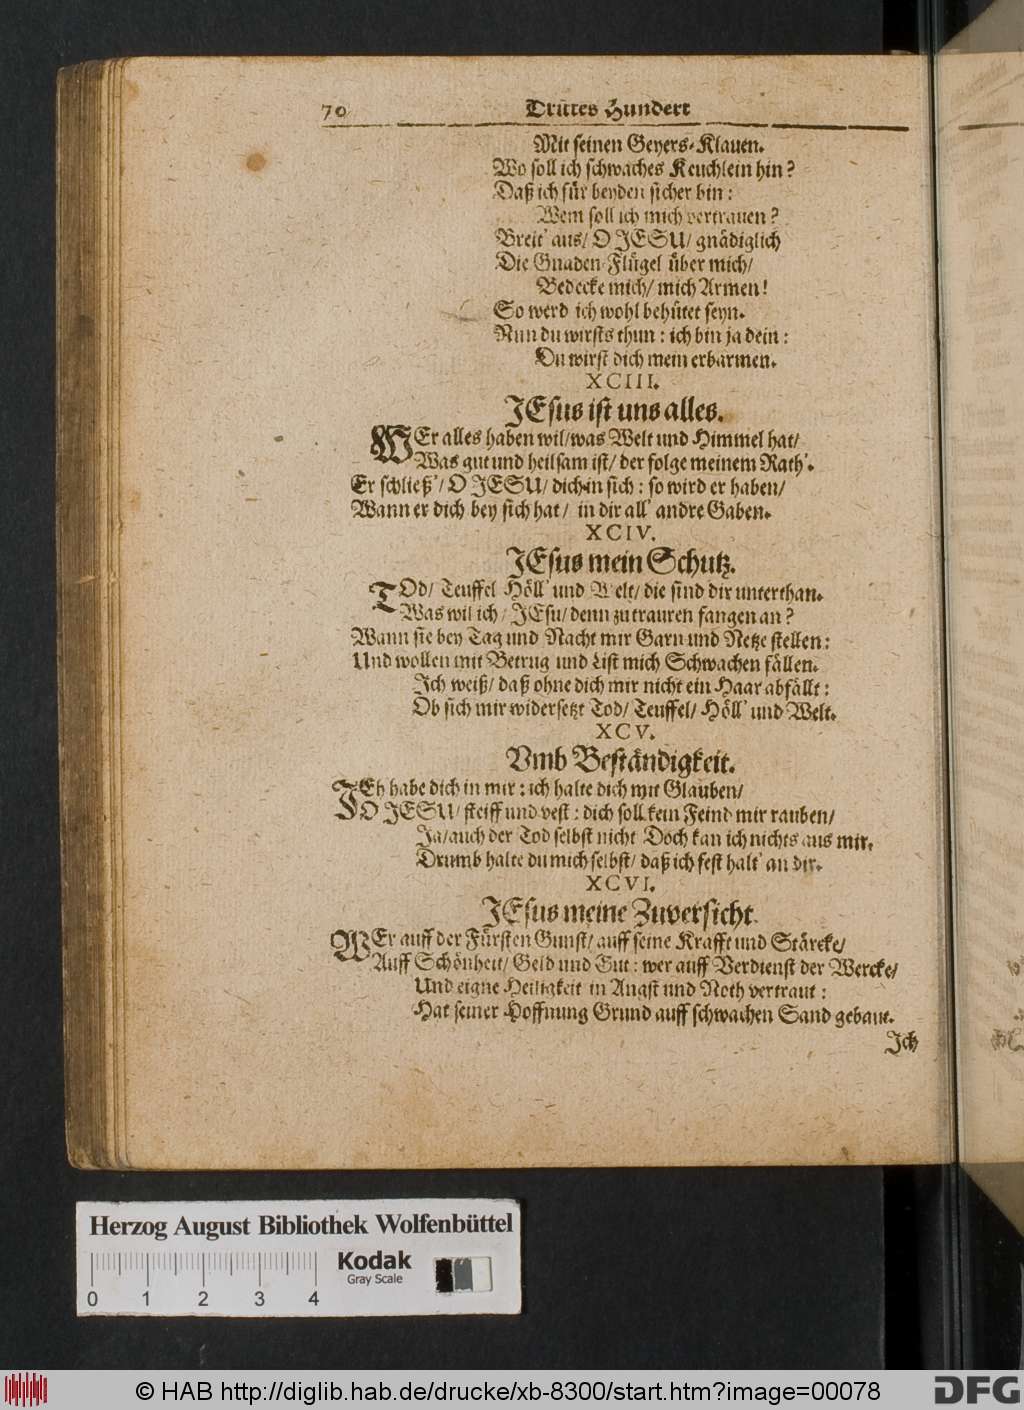 70 Drittes Hundert
Mit seinen Geyers-Klauen.
Wo soll ich schwaches Keuchlein hin?
Daß ich für beyden sicher bin:
Wem soll ich mich vertrauen?
Breit' aus/ O JESU/ gnädiglich
Die Gnaden-Flügel über mich/
Bedecke mich/ mich Armen!
So werd ich wohl behütet seyn.
Nun du wirsts thun: ich bin ja dein:
Du wirst dich mein erbarmen.
XCIII.
JEsus ist uns alles.
WEr alles haben wil/was Welt und Himmel hat/
Was gut und heilsam ist/ der folge meinem Rath'.
Er schließ'/ O JESU/ dich in sich: so wird er haben/
Wann er dich bey sich hat/ in dir all' andre Gaben.
XCIV.
JEsus mein Schutz.
TOd/ Teuffel Höll' und Welt/ die sind dir unterthan.
Was wil ich/ JEsu/ denn zu trauren fangen an?
Wann sie bey Tag und Nacht mir Garn und Netze stellen:
Und wollen mit Betrug und List mich Schwachen fällen.
Ich weiß/ daß ohne dich mir nicht ein Haar abfällt:
Ob sich mir widersetzt Tod/ Teuffel/ Höll' und Welt.
XCV.
Vmb Beständigkeit.
JEh habe dich in mir: ich halte dich mit Glauben/
O JESU/ steiff und vest: dich soll kein Feind mir rauben/
Ja/auch der Tod selbst nicht Doch kan ich nichts aus mir.
Drumb halte du mich selbst/ daß ich fest halt' an dir.
XCVI.
JEsus meine Zuversicht.
WEr auff der Fürsten Gunst/ auff seine Krafft und Stärcke/
Auff Schönheit/ Geld und Gut: wer auff Verdienst der Wercke/
Und eigne Heiligkeit in Angst und Noth vertraut:
Hat seiner Hoffnung Grund auff schwachen Sand gebaut.
Ich
Herzog August Bibliothek Wolfenbüttel
Kodak
Gray Scale
0 1 2 3 4
© HAB http://diglib.hab.de/drucke/xb-8300/start.htm?image=00078
DFG